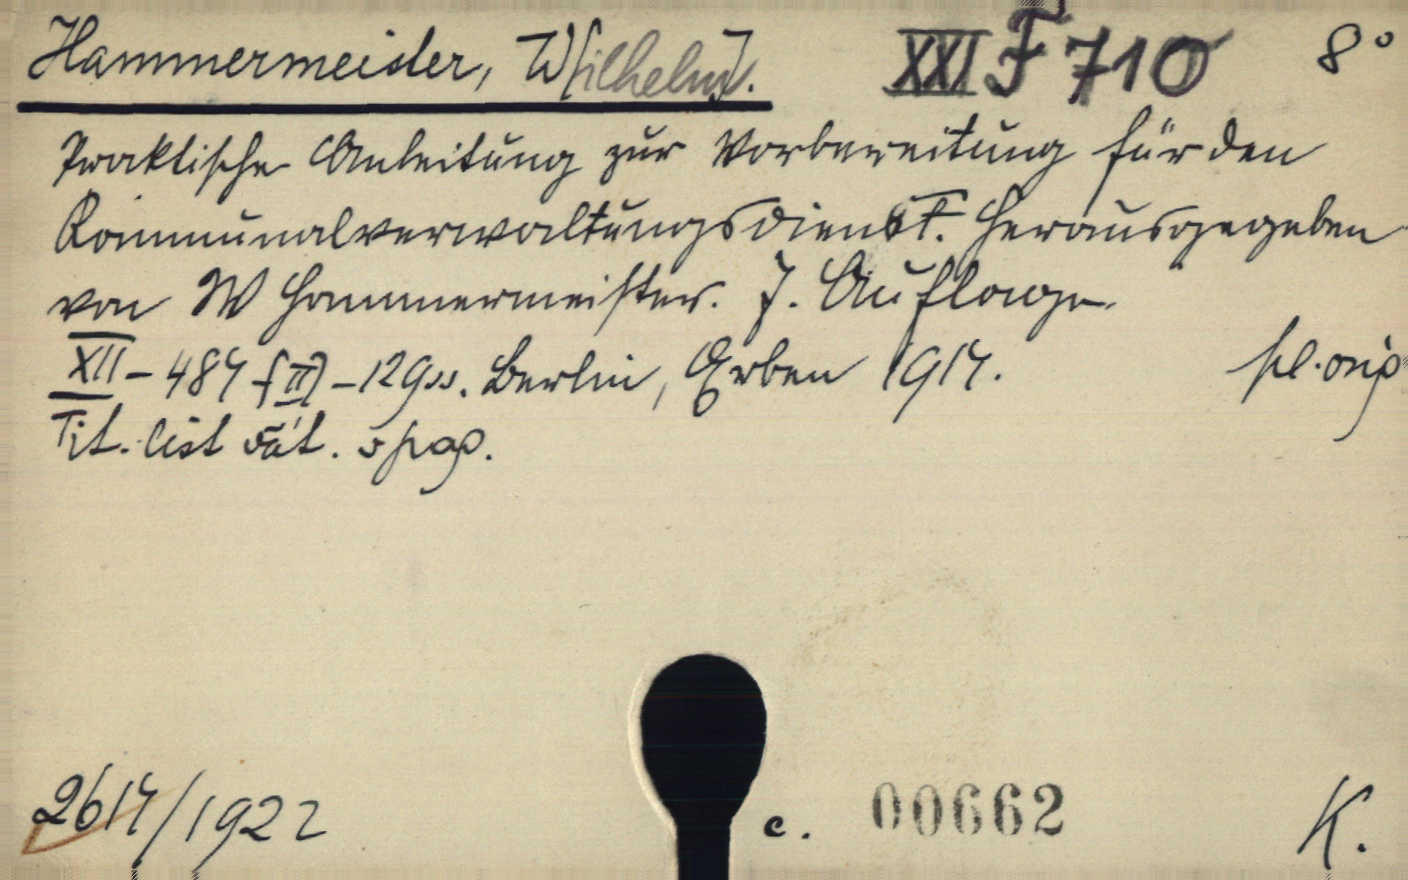 Hammermeister, W[ilhelm]. XXI F 710 8°
Praktische Anleitung zur Vorbereitung für den
Kommunalverwaltungsdienst. Herausgegeben
von W Hammermeister. 7. Auflage.
XII-487 [II]-129ss. Berlin, Erben 1917. pl. orig
Tit. list váz. v pap.
2617/1922 c. 00662 K.